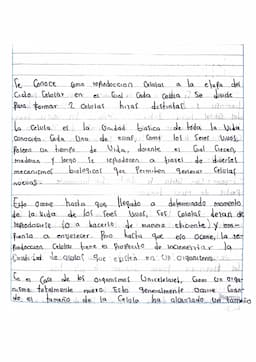 Se Conoce como reproduccion Celular a la etapa del
Ciclo Celular en el Cual Cada Celula Se divide
para formar 2 Celulas hijas distintas.
La Celula es la Unidad basica de toda la Vida
Conocida Cada Una de esas, Como los Seres Vivos,
Poseen Un tiempo de Vida, durante el Cual Crecen,
maduran y luego Se reproducen a traves de diversos
mecanismos biologicos que Permiten generar Celulas
nuevas.
Esto ocurre hasta que llegado a determinado momento
de la Vida de los Seres Vivos, Sus Celulas dejan de
reproducirse (o a hacerlo de manera eficiente) y
a envejecer. Pero hasta que eso Ocurre, la re-
Produccion Celular tiene el Proposito de incrementar la
Cantidad de Celulas que existen en Un organismo.
En el Caso de los organismos Unicelulares, Crear Un orga-
nismo totalmente nuevo. Esto generalmente ocurre Cuan-
do el tamaño de la Celula ha alcanzado Un tamaño